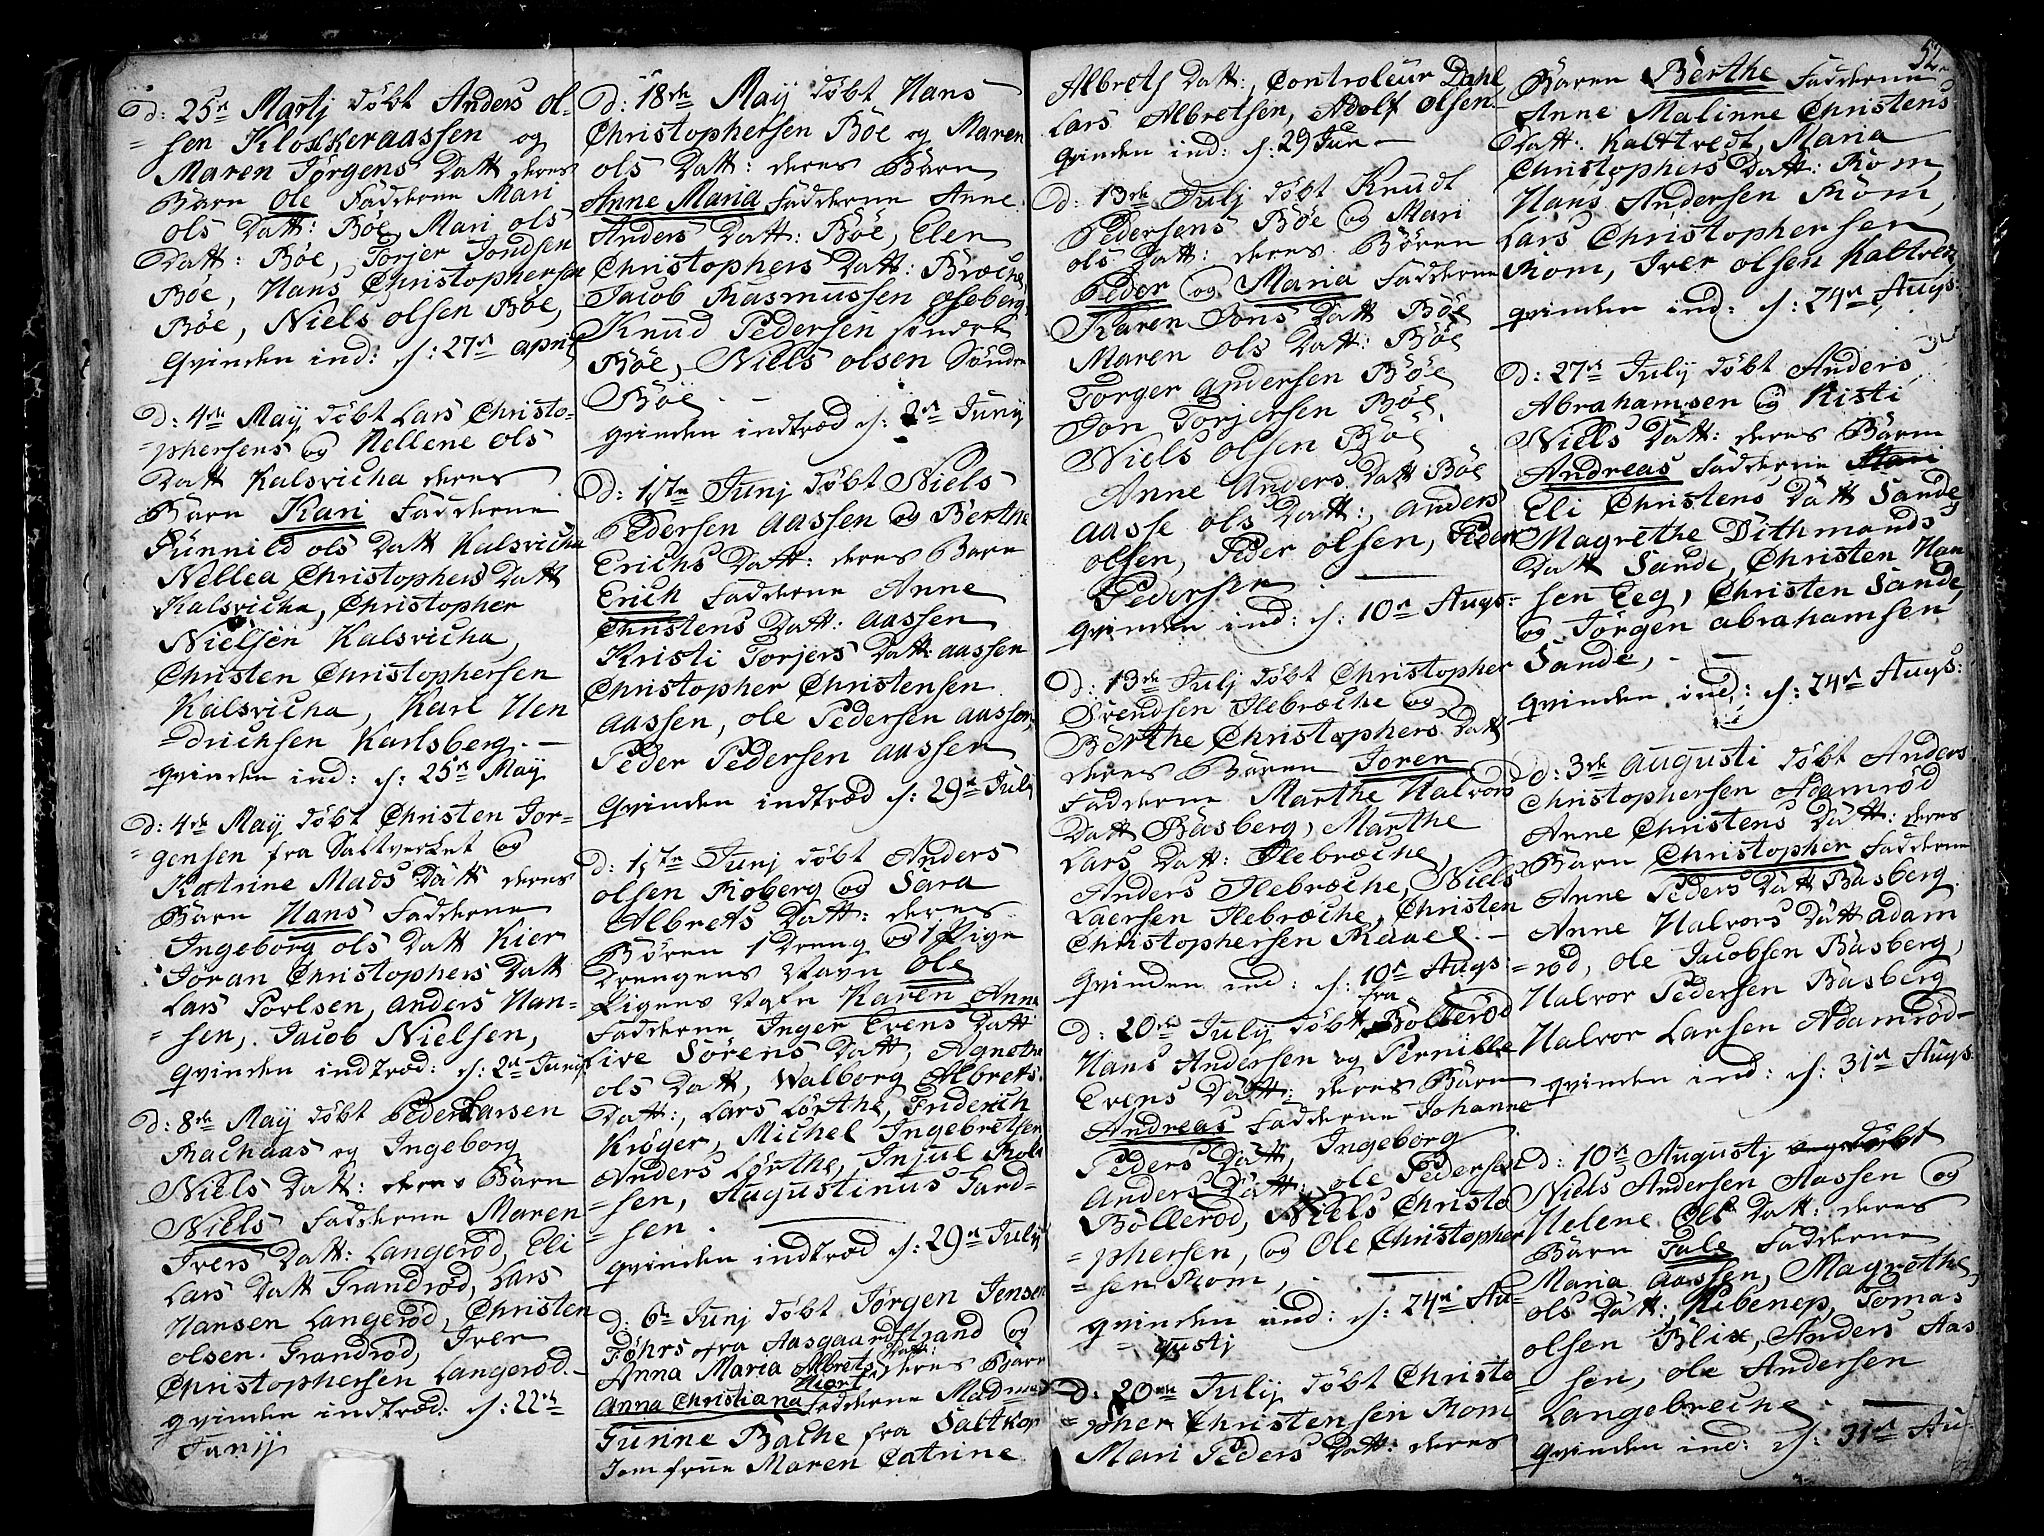 d: 25n Martj døbt Anders ol-
= sen Klokkeraassen og
Maren Jørgens Datt deres
Barn Ole Fadderne Mari
ols Datt: Bøe, Mari ols
Datt: Bøe, Torjer Jondsen
Bøe, Hans Christophersen
Bøe, Niels olsen Bøe,
qvinden ind: d: 27n april
d: 4de Maij døbt Lars Christo-
=phersens og Hellene ols
Datt Kalsvicha deres
Barn Kari Fadderne
Gunnild ols Datt Kalsvicha
Nellea Christophers Datt
Kalsvicha, Christopher
Nielsen Kalsvicha,
Christen Christophersen
Kalsvicha, Karl Hen
=drichsen Karlsberg. —
qvinden ind: d: 25n Maij
d: 4de Maij døbt Christen Jor-
= gensen fra Saltverket og
Katrine Mads Datt deres
Barn Hans Fadderne
Ingeborg ols Datt Kier
Joran Christophers Datt
Lars Porlsen, anders Han-
= sen, Jacob Nielsen,
qvinden indtrød: d: 2n Junij
d: 8de Maij døbt Peder Larsen
Rachaas og Ingeborg
Niels Datt: deres Barn
Niels Fadderne Maren
Ivers Datt: Langerød, Eli
Lars Datt Grandrød, Lars
Hansen Langerød, Christen
olsen Grandrød, Iver
Christophersen Langerød.
qvinden indtræd: d: 22de
Junij
d: 18de Maij døbt Hans
Christophersen Bøe og Maren
ols Datt: deres Barn
Anne Maria Fadderne Anne
Anders Datt: Bøe, Elen
Christophers Datt: Bræche,
Jacob Rasmussen oseberg,
Knud Pedersen søndre
Bøe, Niels olsen Søndre
Bøe —
qvinden indtræd d: 2n Junij
d: 1ste Junj døbt Niels
Pedersen aassen og Berthe
Erichs Datt: deres Barn
Erich Fadderne Anne
Christens Datt: aassen
Kristi Torjers Datt: aassen
Christopher Christensen
aassen, ole Pedersen aassen,
Peder Pedersen aassen
qvinden indtræd d: 29n Julj
d: 1ste Junj døbt Anders
olsen Roberg og Sara
Albrets Datt: deres
Børen 1 Dreng og 1 Pige
Drengens Navn Ole
Pigens Nafn Karen Anne
Fadderne Inger Evens Datt
Live Sørens Datt, Agnethe
ols Datt, Walborg Albrets
Datt:, Lars Lørthe, Friderich
Krøger, Michel Ingebretsen
Anders Lørthe, Injul Rol
= sen, Augustinus Gard-
= sen.
qvinden indtræd d: 29n Julij
d: 6te Junj døbt Jørgen Jensen
Føhrs fra Aasgaardstrand og
Anna Maria Albrets Datt:
deres Barn
Anna Christiana Fadderne Madme
Gunne Bache fra Saltkop
Jomfrue Maren Catrine
Albrets Datt:, Controleur Dahl,
Lars Albretsen, Adolf olsen.
qvinden ind: d: 29 Jun —
d: 13de Julj døbt Knudt
Pedersens Bøe og Mari
ols Datt: deres Børen
Peder og Maria Fadderne
Karen Jons Datt Bøe
Maren ols Datt: Bøe
Torger andersen Bøe
Jon Torjersen Bøe,
Niels olsen Bøe
Anne Anders Datt Bøe
aasse ols Datt:, anders
olsen, Peder olsen, Peder
Pedersen
qvinden ind: d: 10n Augs:
d: 13de Julj døbt Christopher
Svendsen Ilebræche og
Berthe Christophers Datt
deres Baren Joren
Fadderne Marthe Halvors
Datt Basberg, Marthe
Lars Datt: Ilebræche,
Anders Ilebræche, Niels
Laersen Ilebræche, Christen
Christophersen Raael. —
qvinden ind: d: 10n Augs:
fra
d: 20de Julij døbt Bøllerød
Hans Andersen og Pernille
Evens Datt: deres Barn
Andreas Fadderne Johanne
Peders Datt, Ingeborg
Anders Datt: ole Pedersen
Bøllerød, Niels Christo
=phersen, og Ole Christopher
=sen Rom,
qvinden ind: d: 24n Au-
= gustj
d: 20de Julij døbt Christo
=pher Christensen Rom
Mari Peders Datt: deres
52
Baren Berthe Fadderne
Anne Malinne Christens
Datt: Kalttvedt, Maria
Christophers Datt: Rom,
Hans Andersen Rom,
Lars Christophersen
Rom, Iver olsen Kaltvet
qvinden ind: d: 24n Augs:
d: 27n Julij døbt Anders
Abrahamsen og Kisti
Niels Datt: deres Barn
Andreas Fadderne Mari
Eli Christens Datt Sande,
Magrethe Dithmands
Datt Sande, Christen Han
sen Eeg, Christen Sande
og Jørgen abrahamsen
Sande, —
qvinden ind: d: 24n Augs:
d: 3de augusti døbt Anders
Christophersen Adamrød
Anne Christens Datt: deres
Barn Christopher Fadderne
Anne Peders Datt Basberg.
Anne Halvors Datt adam
=rød, ole Jacobsen Basberg,
Halvor Pedersen Basberg
Halvor Larsen Adamrød
qvinden ind: d: 31n Augs:
d: 10n Augustj døbt
Niels Andersen Aassen og
Helene Ols Datt: deres
Barn Tale Fadderne
Maria aassen, Magrethe
ols Datt: Ribenep, Tomas
olsen Blix, Anders Aas
= sen, ole Andersen
Langebreche.
qvinden ind: d: 31n Au